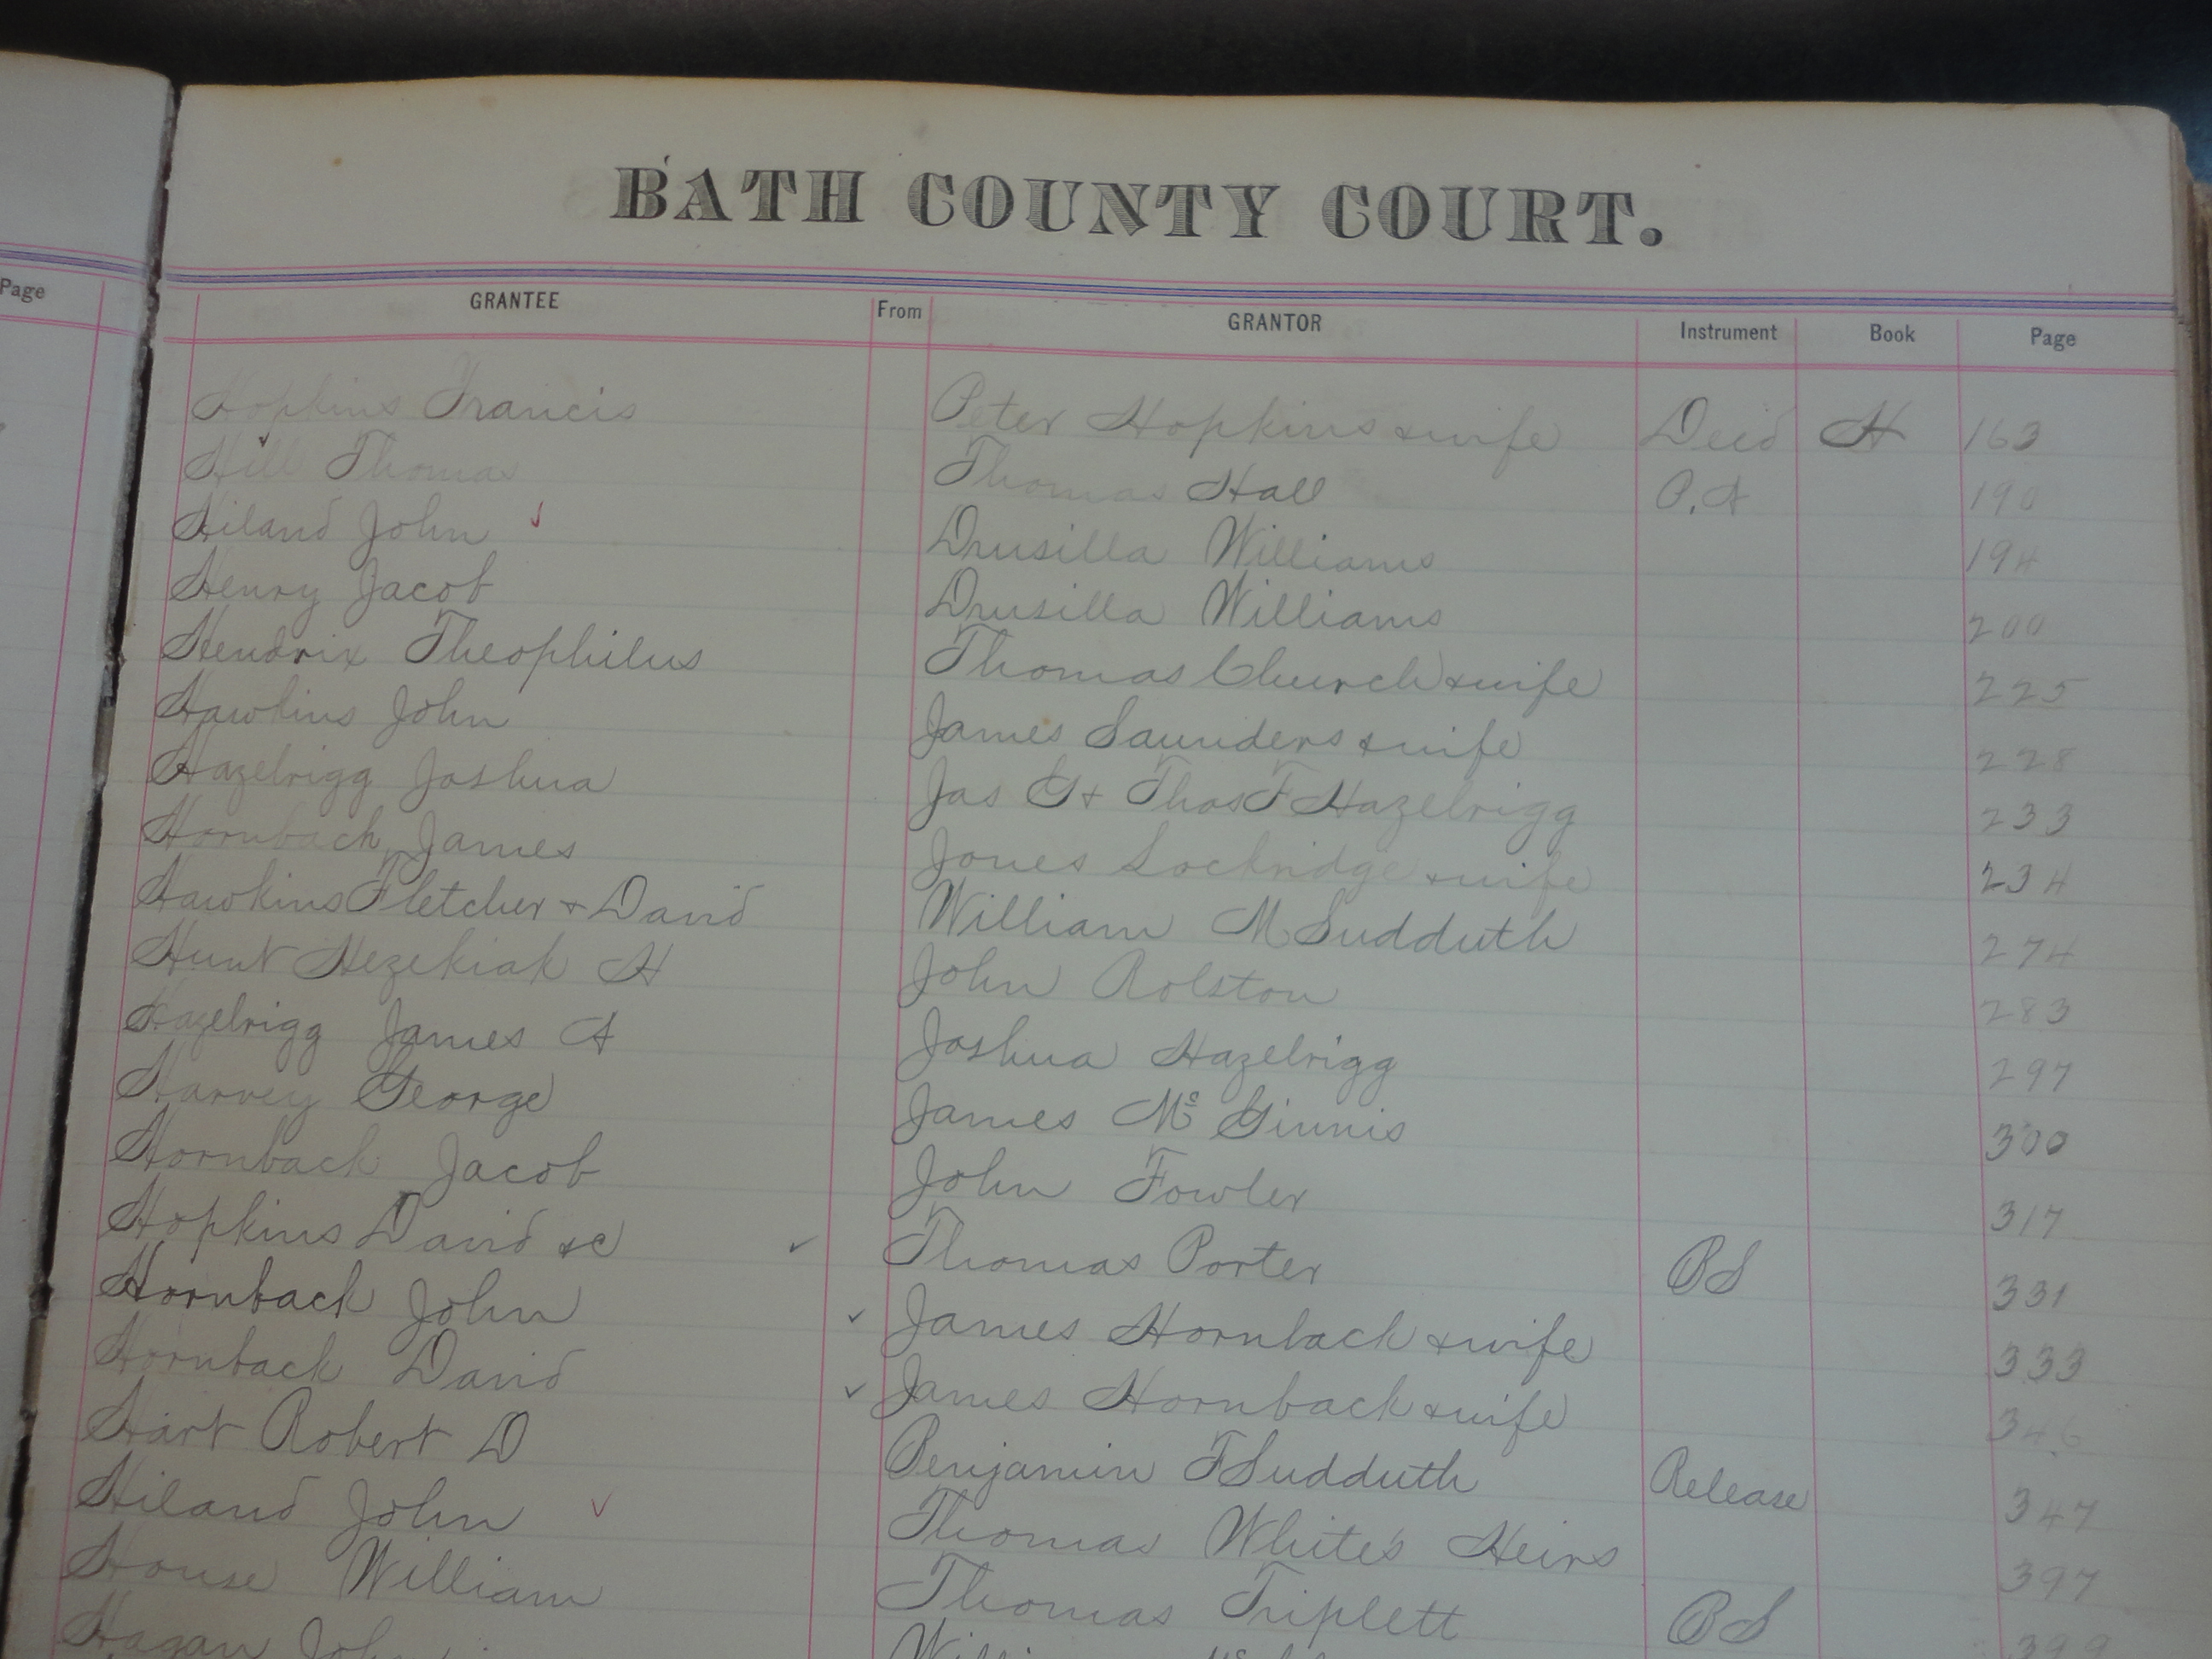 BATH COUNTY COURT.
Page
GRANTEE From GRANTOR Instrument Book Page
Hopkins Francis Peter Hopkins & wife Deed H 163
Hill Thomas Thomas Hall P.A 190
Hiland John Drusilla Williams 194
Henry Jacob Drusilla Williams 200
Hendrix Theophilus Thomas Church & wife 225
Hawkins John James Saunders & wife 228
Hazelrigg Joshua Jas G & Thos F Hazelrigg 233
Hornback James Jones Lockridge & wife 234
Hawkins Fletcher & David William M Sudduth 274
Hunt Hezekiah H John Rolston 283
Hazelrigg James A Joshua Hazelrigg 297
Harvey George James Mc Ginnis 300
Hornback Jacob John Fowler 317
Hopkins David &c Thomas Porter BS 331
Hornback John James Hornback & wife 333
Hornback David James Hornback & wife 346
Hart Robert D Benjamin F Sudduth Release 347
Hiland John Thomas White's Heirs 397
House William Thomas Triplett BS 399
Hagan John